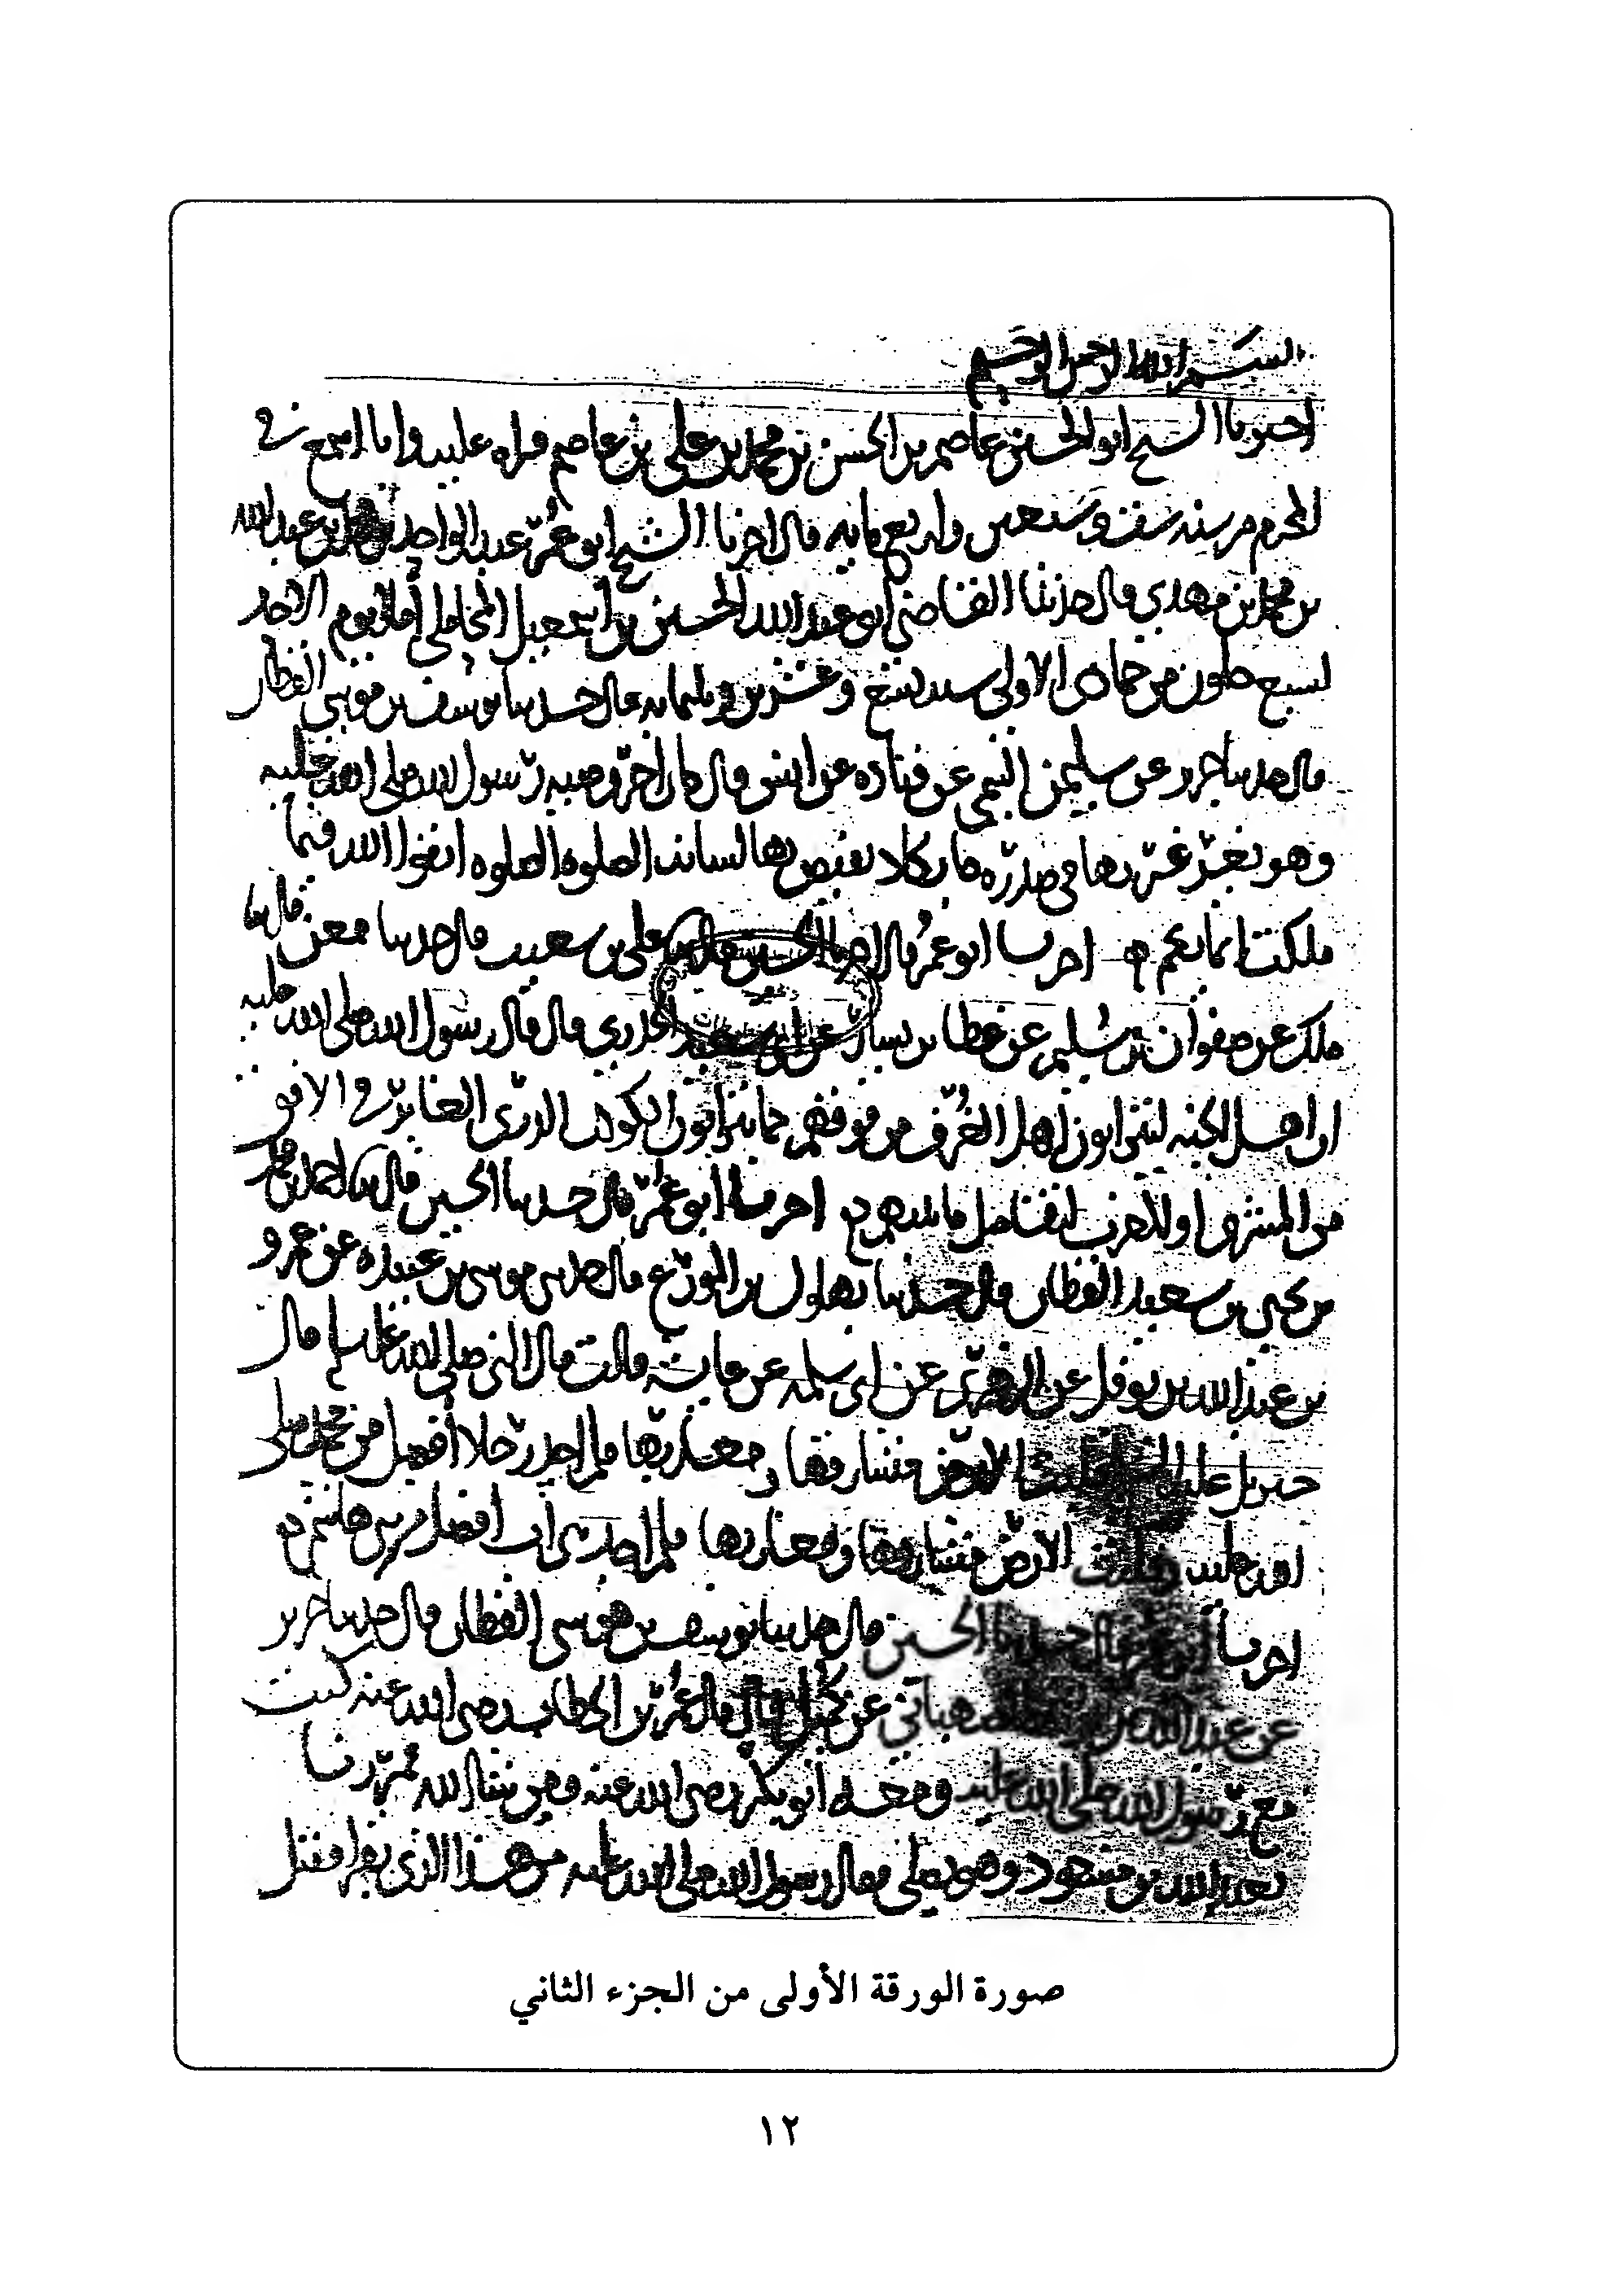 بسم الله الرحمن الرحيم
اخبرنا الشيخ ابو الحسين عاصم بن الحسن بن محمد بن علي بن عاصم قراه عليه وانا اسمع في
المحرم من سنه ست وسبعين واربع مايه قال اخبرنا الشيخ ابو عمر عبد الواحد بن محمد بن عبد الله
بن محمد بن مهدي قال حدثنا القاضي ابو عبد الله الحسين بن اسمعيل المحاملي املا يوم الاحد
لسبع خلون من جمادى الاولى سنه تسع وعشرين وثلثمايه قال حدثنا يوسف بن موسى القطان
قال حدثنا جرير عن سليمن التيمي عن قتاده عن انس قال كان اخر وصيه رسول الله صلى الله عليه
وهو يغرغر بها في صدره ما يكاد يفيص بها لسانه الصلوه الصلوه اتقوا الله فيما
ملكت ايمانكم اخبرنا ابو عمر قال اخبرنا الحسين قال علي بن شعيب قال حدثنا معن قال ثنا
ملك عن صفوان بن سليم عن عطا بن يسار عن ابي سعيد الخدري قال قال رسول الله صلى الله عليه
ان اهل الجنه ليتراون اهل الغرف من فوقهم كما تتراون الكوكب الدري الغابر في الافق
من المشرق او المغرب لتفاضل ما بينهم اخبرنا ابو عمر قال حدثنا الحسين قال ثنا احمد بن محمد
بن يحيى بن سعيد القطان قال حدثنا بهلول بن المورع قال حدثني موسى بن عبيده عن عمرو
بن عبد الله بن نوفل عن الزهري عن ابي سلمه عن عايشه قالت قال النبي صلى الله عليه قال
جبريل عليه الارض مشارقها ومغاربها فلم اجد رجلا افضل من محمد صلى
الله عليه وقلبت الارض مشارقها ومغاربها فلم اجد بني اب افضل من بني هاشم
اخبرنا ابو عمر قال حدثنا الحسين قال حدثنا يوسف بن موسى القطان قال حدثنا جرير
عن عبد الله بن عن كميل قال قال عمر بن الخطاب رضي الله عنه كنت
مع رسول الله صلى الله عليه ومعه ابو بكر رضي الله عنه ومن شا الله فمررنا
بعبد الله بن مسعود وهو يصلي فقال رسول الله صلى الله عليه من هذا الذي يقرا فقيل
صورة الورقة الأولى من الجزء الثاني
١٢